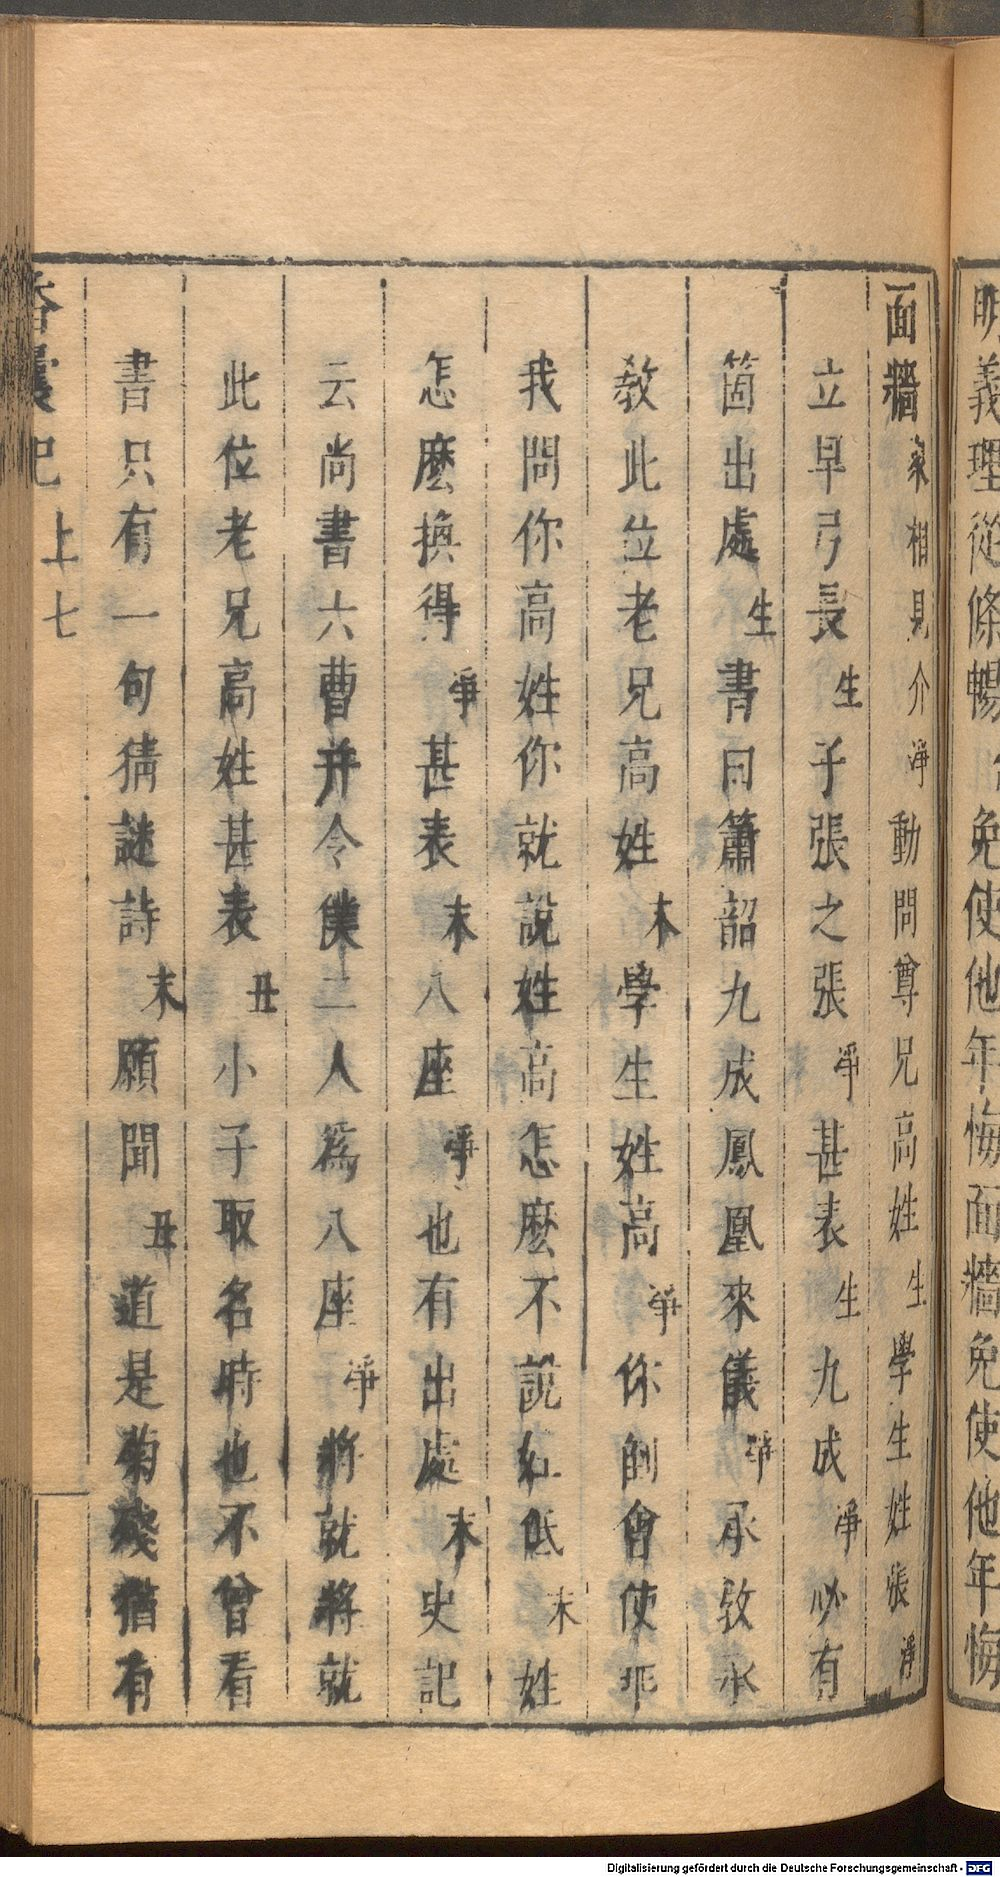 明義理從條暢免使他年悔面牆免使他年悔
面牆衆相見介淨動問尊兄高姓生學生姓張淨
立早弓長生子張之張淨甚表生九成淨必有
箇出處生書曰簫韶九成鳳凰來儀淨承教承
教此位老兄高姓末學生姓高淨你倒會使乖
我問你高姓你就說姓高怎麼不說紅低末姓
怎麼換得淨甚表末八座淨也有出處末史記
云尚書六曹并令僕二人為八座淨將就將就
此位老兄高姓甚表丑小子取名時也不曾看
書只有一句猜謎詩末願聞丑道是菊殘猶有
香囊記 上 七
Digitalisierung gefördert durch die Deutsche Forschungsgemeinschaft - DFG